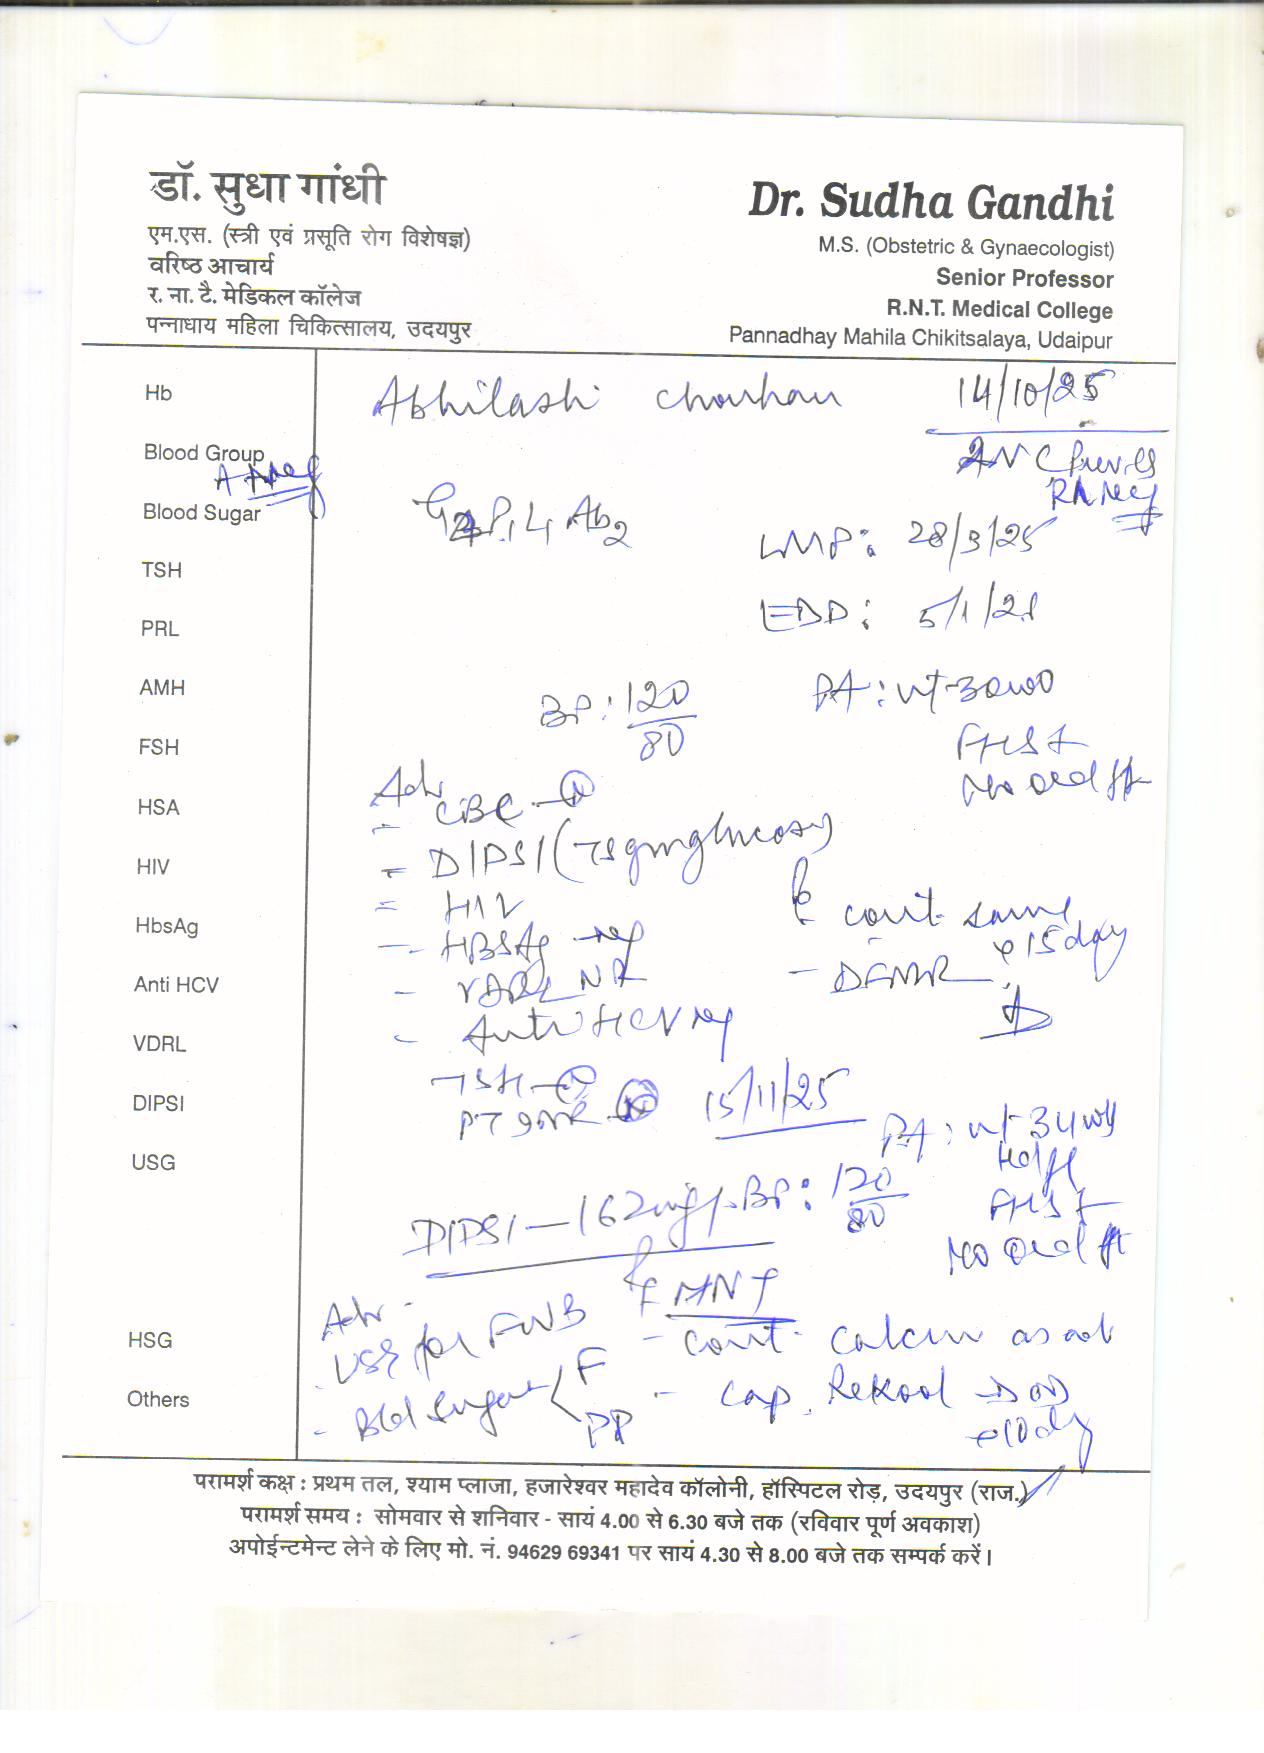 डॉ. सुधा गांधी
एम.एस. (स्त्री एवं प्रसूति रोग विशेषज्ञ)
वरिष्ठ आचार्य
र. ना. टै. मेडिकल कॉलेज
पन्नाधाय महिला चिकित्सालय, उदयपुर
Dr. Sudha Gandhi
M.S. (Obstetric & Gynaecologist)
Senior Professor
R.N.T. Medical College
Pannadhay Mahila Chikitsalaya, Udaipur
Hb
Blood Group
A
Blood Sugar
TSH
PRL
AMH
FSH
HSA
HIV
HbsAg
Anti HCV
VDRL
DIPSI
USG
HSG
Others
Abhilash Chouhan 14/10/25
Ab2
LMP: 28/3/25
EDD: 5/1/
BP: 120/80
PA: ut-30w
FHS +
Adv
- CBC - N
= DIPSI (75gm glucose)
= HIV
- HBSAg - neg
- VDRL NR
- Anti HCV neg
TSH - N
PT INR N
cont. same
x 15 day
- DFMR
15/11/25
PA: ut-34w
DIPSI - 162mg/. BP: 120/80
FHS +
MNT
Adv -
- USG for FWB
- Bld Sugar < F
PP
- cont. calcium as adv
- Cap. Rekool - D OD
x 10 day
परामर्श कक्ष : प्रथम तल, श्याम प्लाजा, हजारेश्वर महादेव कॉलोनी, हॉस्पिटल रोड़, उदयपुर (राज.)
परामर्श समय : सोमवार से शनिवार - सायं 4.00 से 6.30 बजे तक (रविवार पूर्ण अवकाश)
अपोईन्टमेन्ट लेने के लिए मो. नं. 94629 69341 पर सायं 4.30 से 8.00 बजे तक सम्पर्क करें।